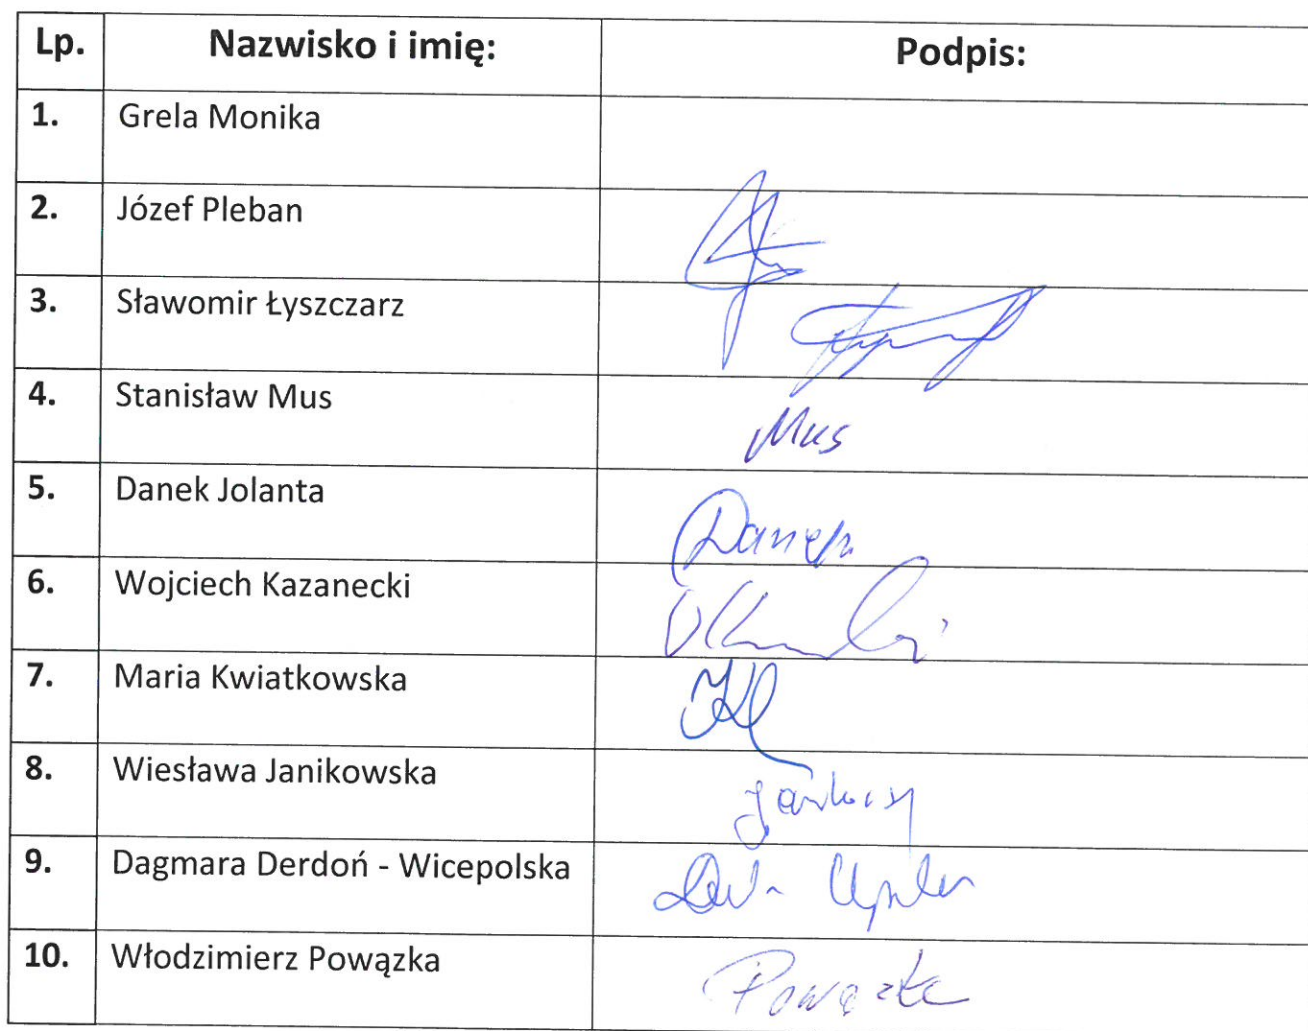 Lp. Nazwisko i imię: Podpis:
1. Grela Monika
2. Józef Pleban
3. Sławomir Łyszczarz
4. Stanisław Mus Mus
5. Danek Jolanta Danek
6. Wojciech Kazanecki
7. Maria Kwiatkowska
8. Wiesława Janikowska
9. Dagmara Derdoń - Wicepolska
10. Włodzimierz Powązka Powązka